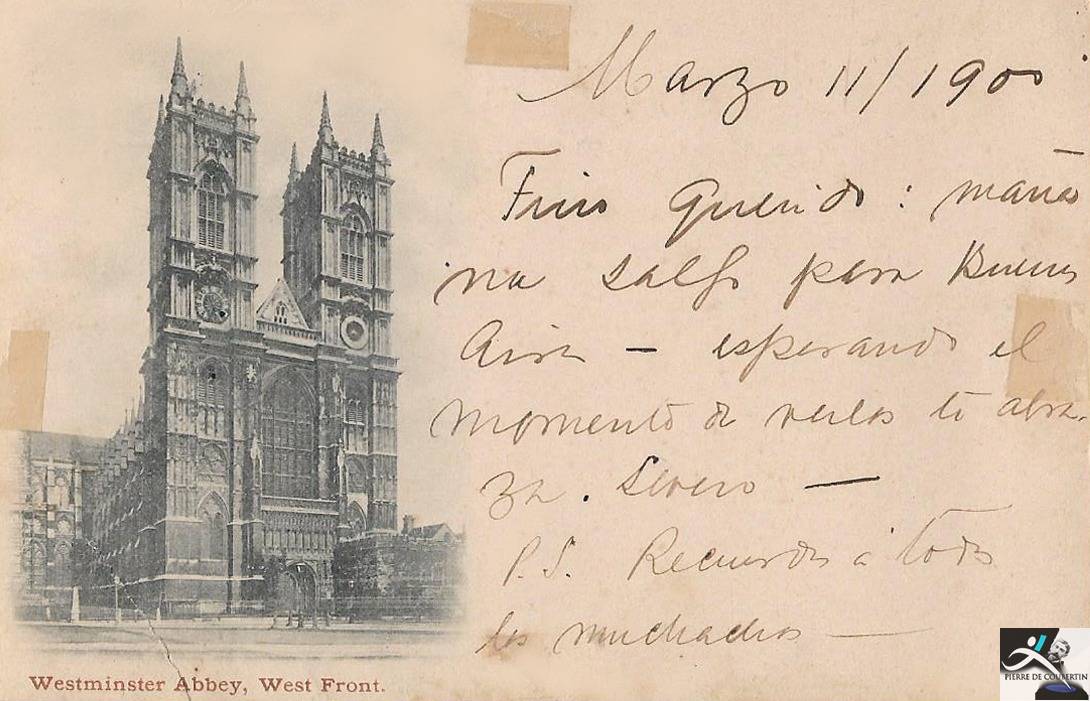 Marzo 11/1900
Querido: maña
na salgo para Buenos
Aires — esperando el
momento de verlos te abra
za. Severo —
P.S. Recuerdos á todos
los muchachos —
Westminster Abbey, West Front.
PIERRE DE COUBERTIN